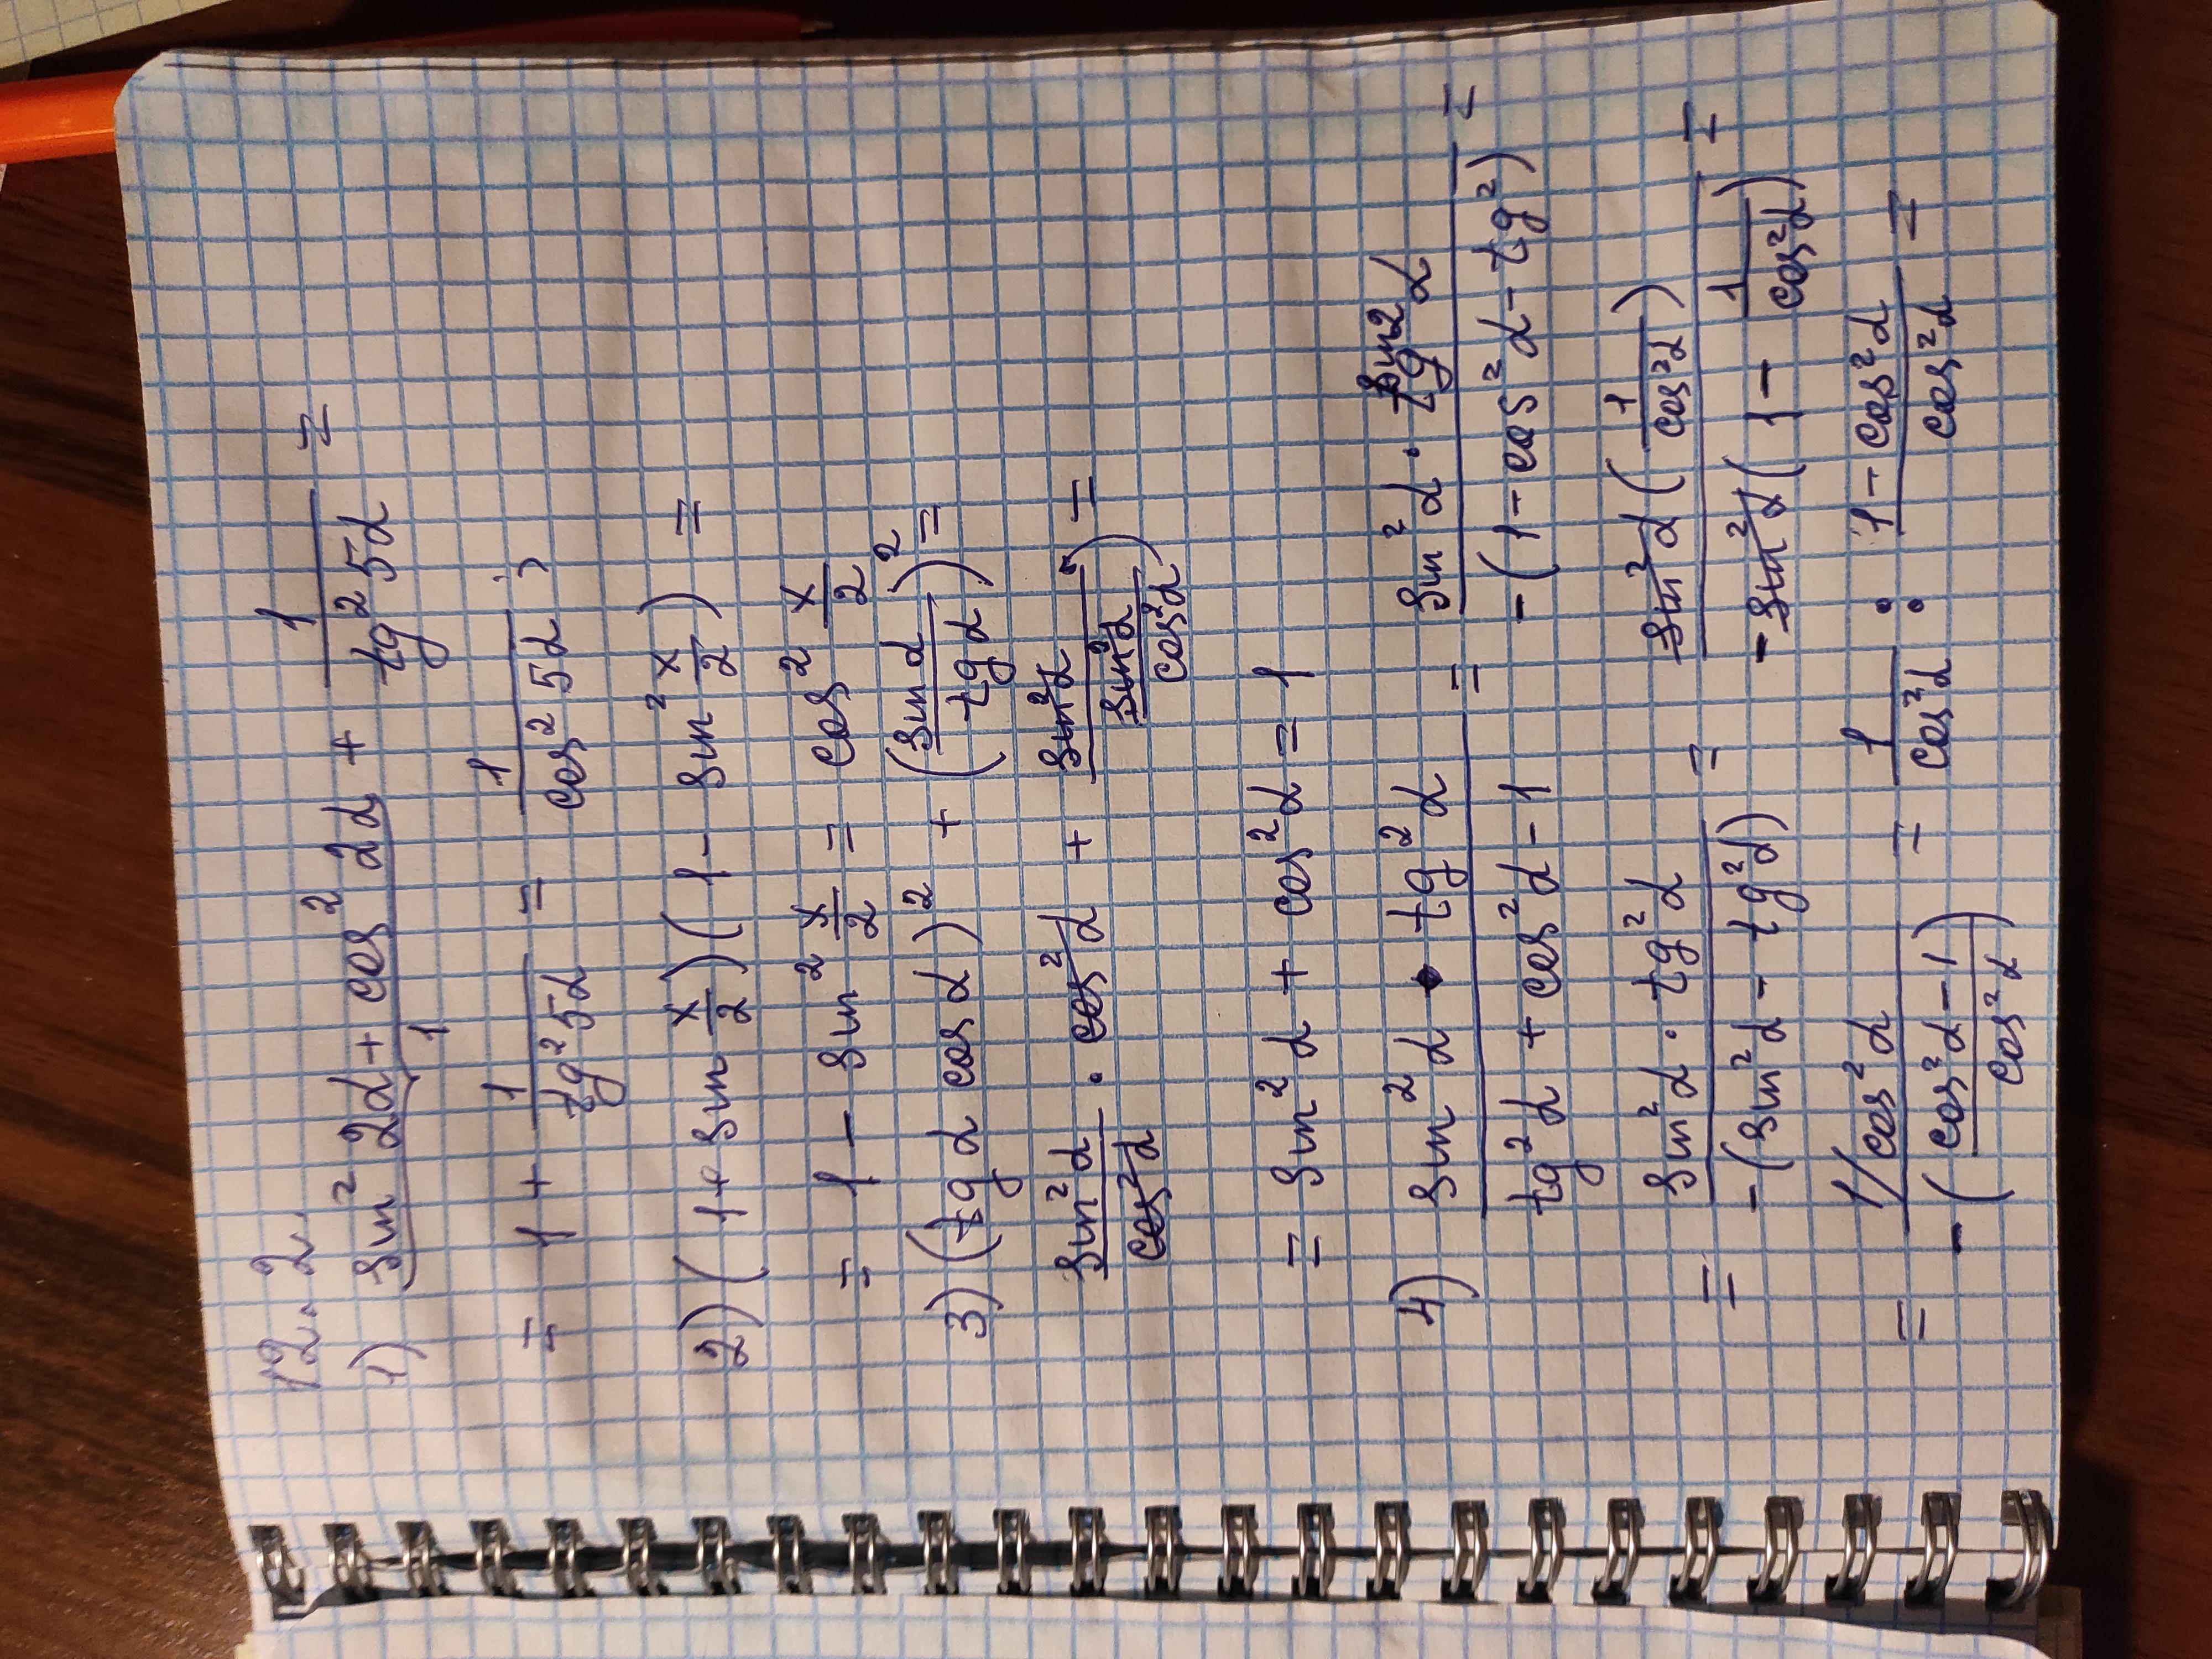 12.2.
1) sin² 2α + cos² 2α + 1/tg² 5α =
1
= 1 + 1/tg² 5α = 1/cos² 5α ;
2) (1 + sin x/2)(1 - sin² x/2) =
= 1 - sin² x/2 = cos² x/2
3) (tg α cos α)² + (sin α/tg α)² =
sin² α/cos² α · cos² α + sin² α/(sin² α/cos² α) =
= sin² α + cos² α = 1
4) (sin² α · tg² α)/(tg² α + cos² α - 1) = (sin² α · tg² α)/(-(1 - cos² α - tg²)) =
= (sin² α · tg² α)/(-(sin² α - tg² α)) = (sin² α (1/cos² α))/(-sin² α (1 - 1/cos² α)) =
= (1/cos² α)/(-((cos² α - 1)/cos² α)) = 1/cos² α : (1 - cos² α)/cos² α =